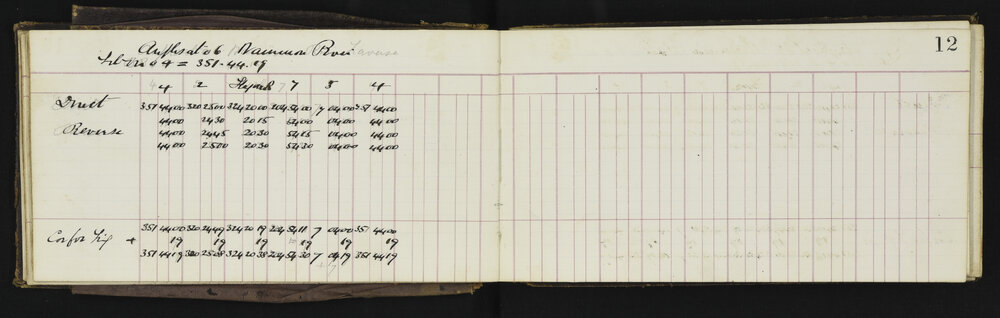 12
Angles at 06 Waimumu River
= 351-44.19
4 2 7 3 4
Direct 351 44 00 320 25 00 324 20 00 204 54 00 7 04 00 351 44 00
44 00 24 30 20 15 54 00 04 00 44 00
Reverse 44 00 24 45 20 30 54 15 04 00 44 00
44 00 25 00 20 30 54 30 04 00 44 00
351 44 00 320 24 49 324 20 19 204 54 11 7 04 00 351 44 00
Cor for + 19 19 19 19 19 19
351 44 19 320 25 08 324 20 38 204 54 30 7 04 19 351 44 19